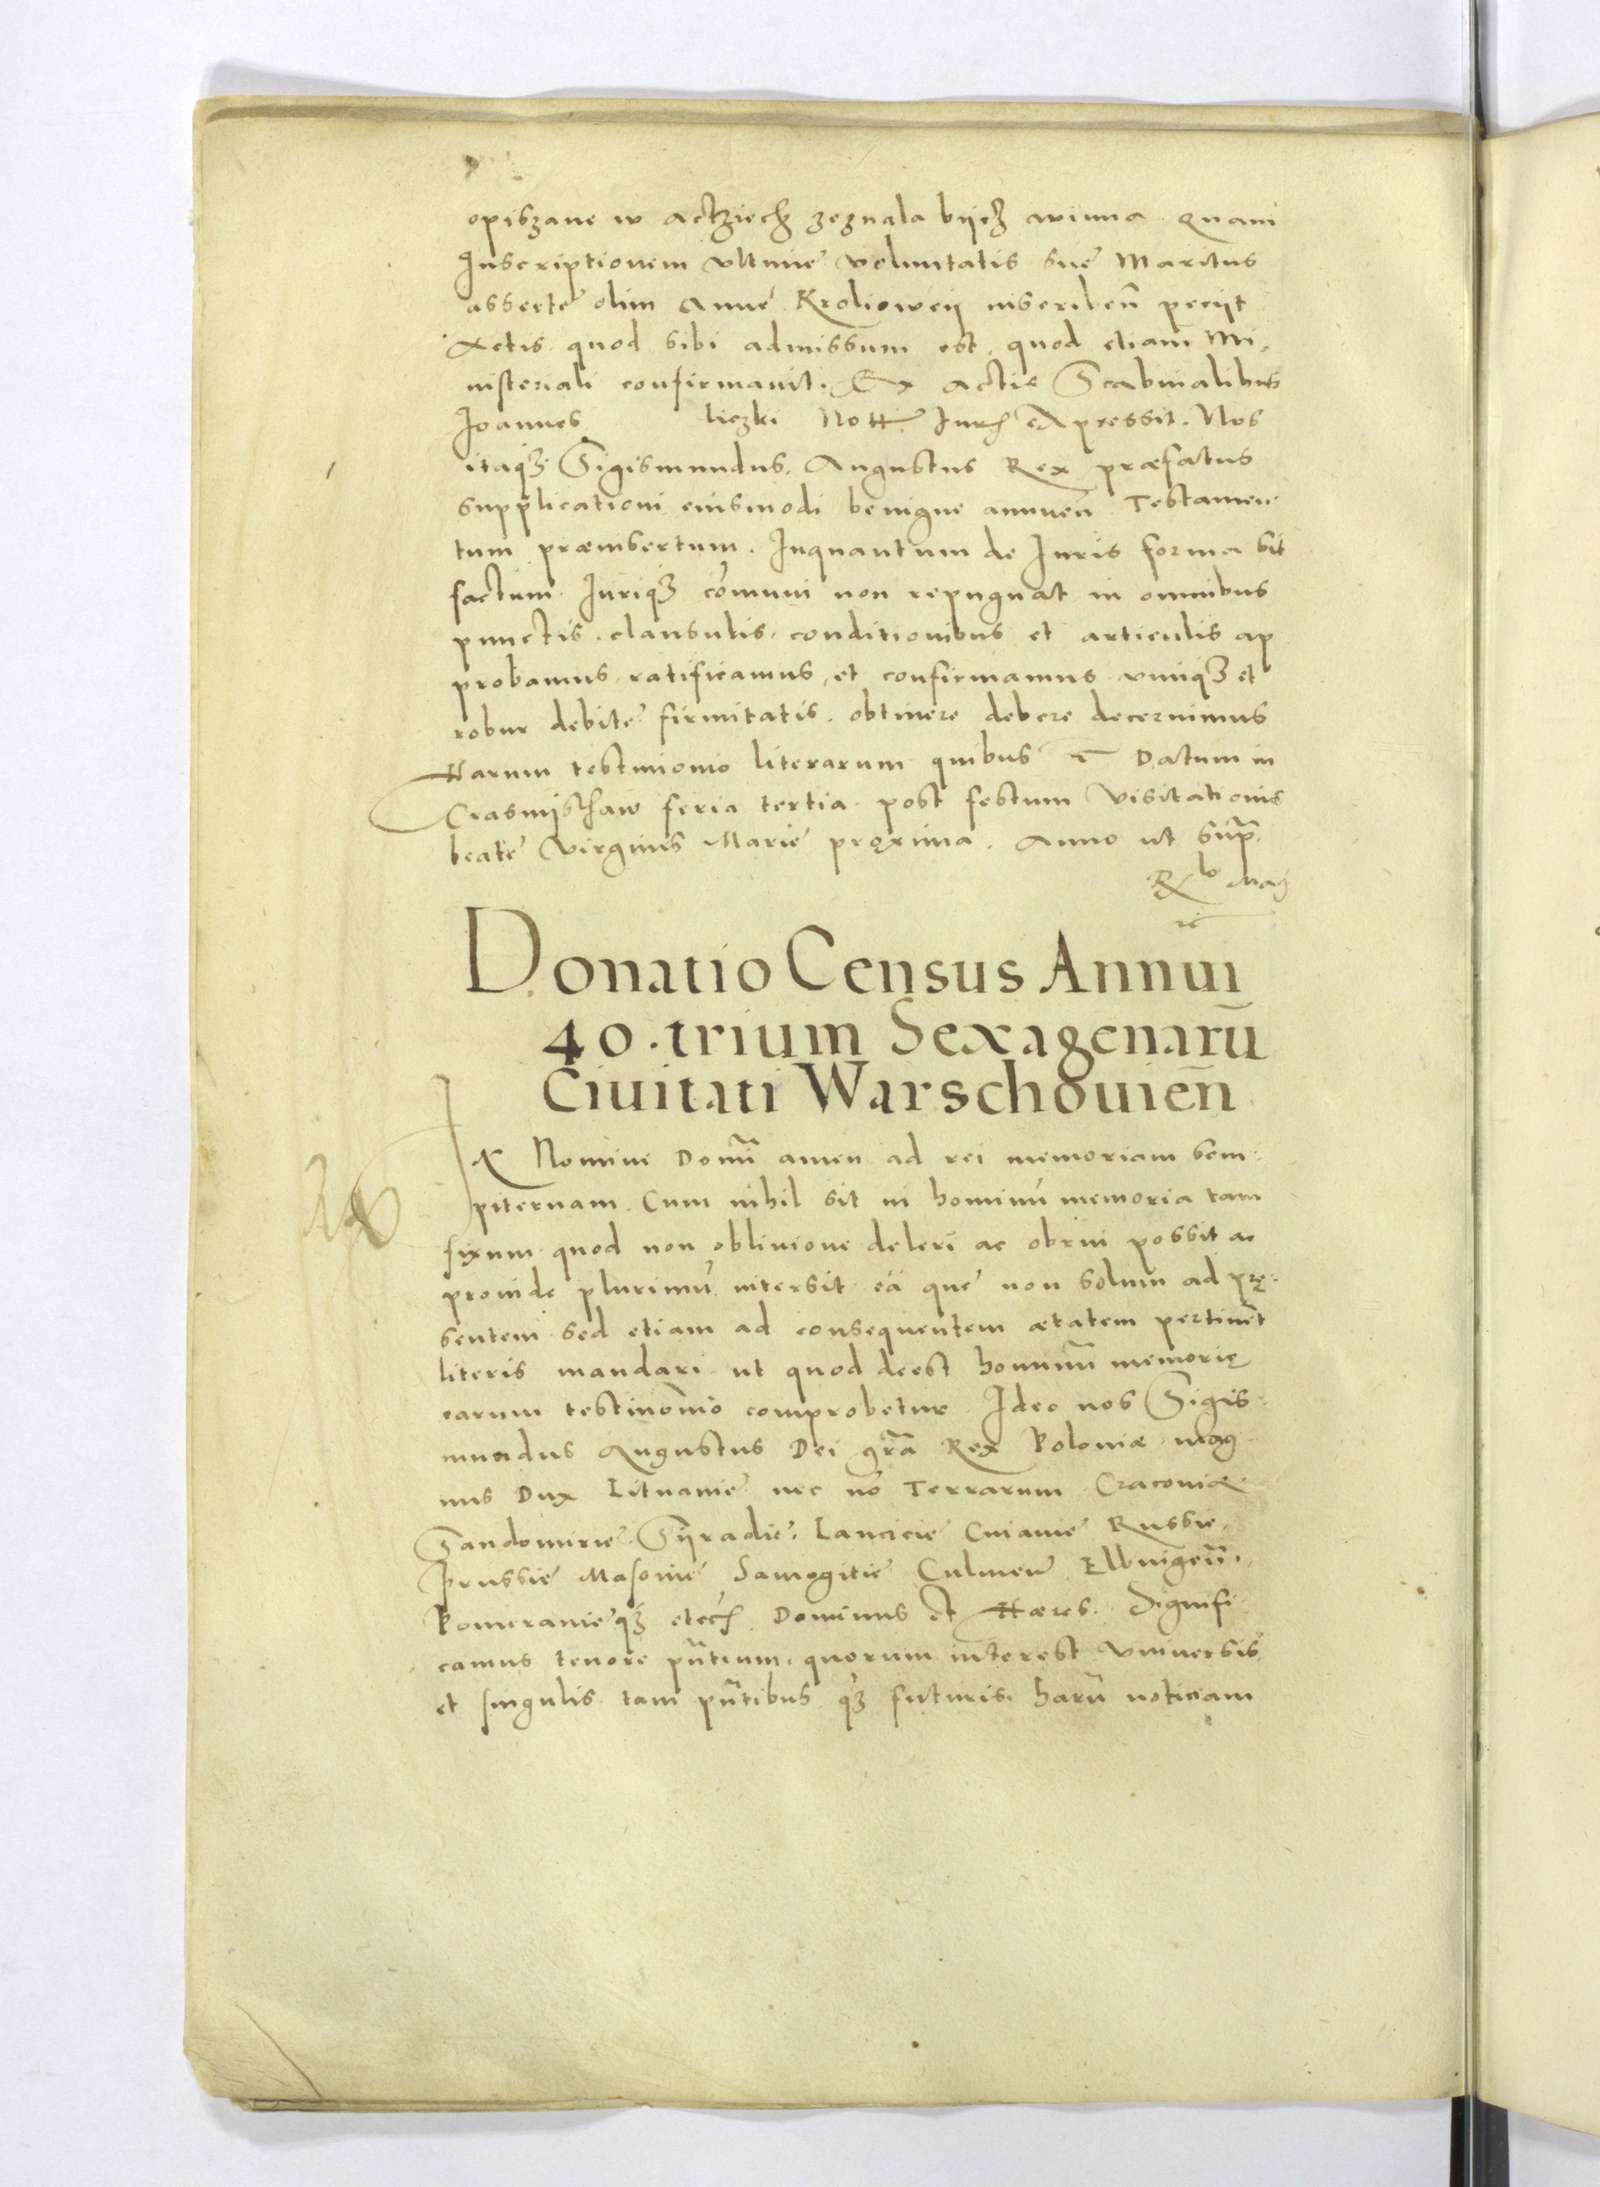 opiszane w actziech zeznala bÿcz awinna quam
Inscriptionem vltime voluntatis sue Maritus
asserte olim Anne Kroliowey inseriben̄ peciit
Actis quod sibi admissum est, quod etiam Mi,
nisteriali confirmauit. Ex actis Scabinalibus
Joannes liczki Nott. Jur̄ expressit. Nos
itaqȝ Sigismundus Augustus Rex præfatus
supplicationi eiusmodi benigne annuen̄ Testamen,
tum præinsertum. Inquantum de Juris forma sit
factum Juriqȝ cōmuni non repugnat in omnibus
punctis, clausulis, conditionibus et articulis ap
probamus, ratificamus, et confirmamus vimqȝ et
robur debite firmitatis obtinere debere decernimus
Harum testimonio literarum quibus Datum in
Crasnijsthaw feria tertia post festum Visitationis
beate Virginis Marie proxima. Anno ut sup̄.
Donatio Census Annui
40. trium Sexagenarū
Ciuitati Warschouien̄
IN Nomine Domī amen ad rei memoriam sem,
piternam. Cum nihil sit in hominū memoria tam
fixum quod non obliuione deleri ac obrui possit ac
proinde plurimū intersit ea que non solum ad prę,
sentem sed etiam ad consequentem ætatem pertinēt
literis mandari ut quod deest hominum memorię
earum testimonio comprobetur Ideo nos Sigis,
mundus Augustus Dei gr̄a Rex Poloniæ mag
nus Dux Lituanie nec nō Terrarum Cracoviæ
Sandomirie Sÿradie, Lancicie Cuiauie Russie,
Prussie Masovie Samogitie Culmen̄ Elbingen̄,
Pomeranieqȝ etc̄ Dominus et Hæres. Signifi
camus tenore pn̄tium, quorum interest Vniuersis
et singulis tam pn̄tibus qȝ futuris harū noticiam